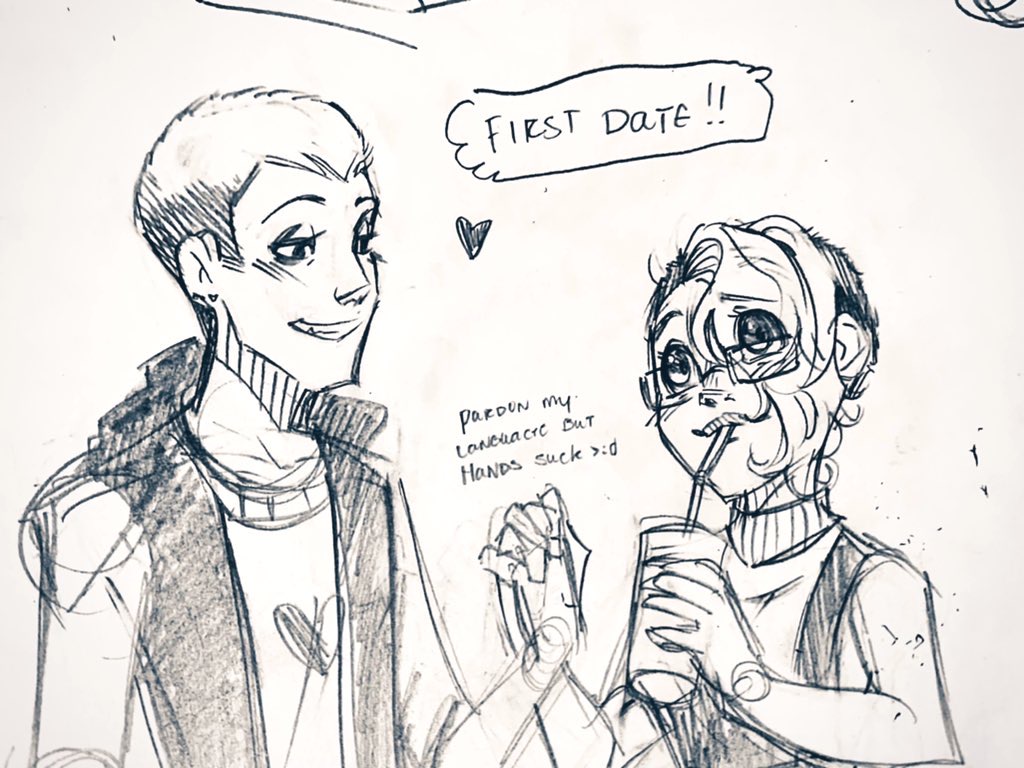 FIRST DATE!!
PARDON My.
LANGUAGE BUT
HANDS SUCK >:d